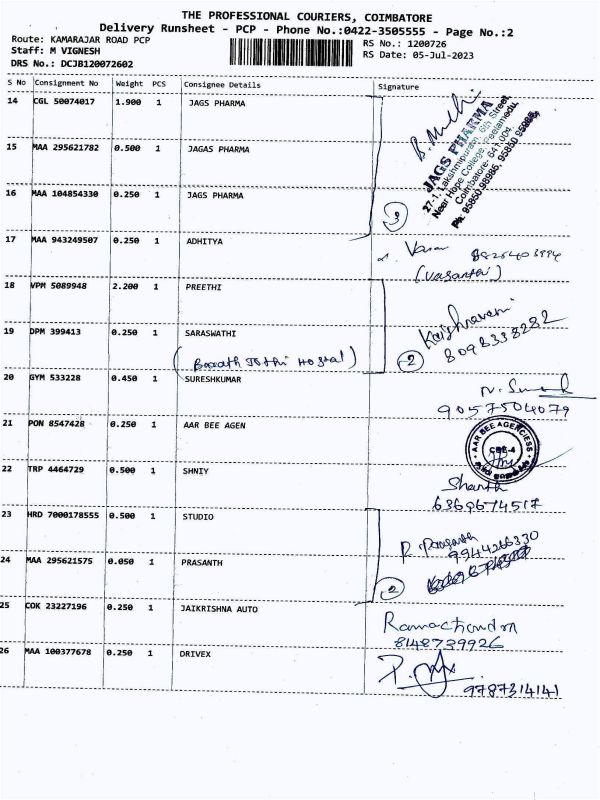 THE PROFESSIONAL COURIERS, COIMBATORE
Delivery Runsheet - PCP - Phone No.:0422-3505555 - Page No.:2
Route: KAMARAJAR ROAD PCP
RS No.: 1200726
Staff: M VIGNESH
RS Date: 05-Jul-2023
DRS No.: DCJB120072602
S No Consignment No Weight PCS Consignee Details Signature
14 CGL 50074017 1.900 1 JAGS PHARMA
JAGS PHARMA
27-1, Lakshmipuram, 6th Street,
Near Hope College, Peelamedu,
Coimbatore- 641 004.
Ph: 95850 98985, 95850 65985
15 MAA 295621782 0.500 1 JAGAS PHARMA
16 MAA 104854330 0.250 1 JAGS PHARMA
3
17 MAA 943249507 0.250 1 ADHITYA
(Vasanthi)
18 VPM 5089948 2.200 1 PREETHI
8098338282
19 DPM 399413 0.250 1 SARASWATHI
2
20 GYM 533228 0.450 1 SURESHKUMAR
9057504079
21 PON 8547428 0.250 1 AAR BEE AGEN
AAR BEE AGENCIESS
CBE-4
22 TRP 4464729 0.500 1 SHNIY
Shanth
6369674517
23 HRD 7000178555 0.500 1 STUDIO
9944266330
24 MAA 295621575 0.050 1 PRASANTH
2
25 COK 23227196 0.250 1 JAIKRISHNA AUTO
Ramachandra
8148739926
26 MAA 100377678 0.250 1 DRIVEX
9787314141